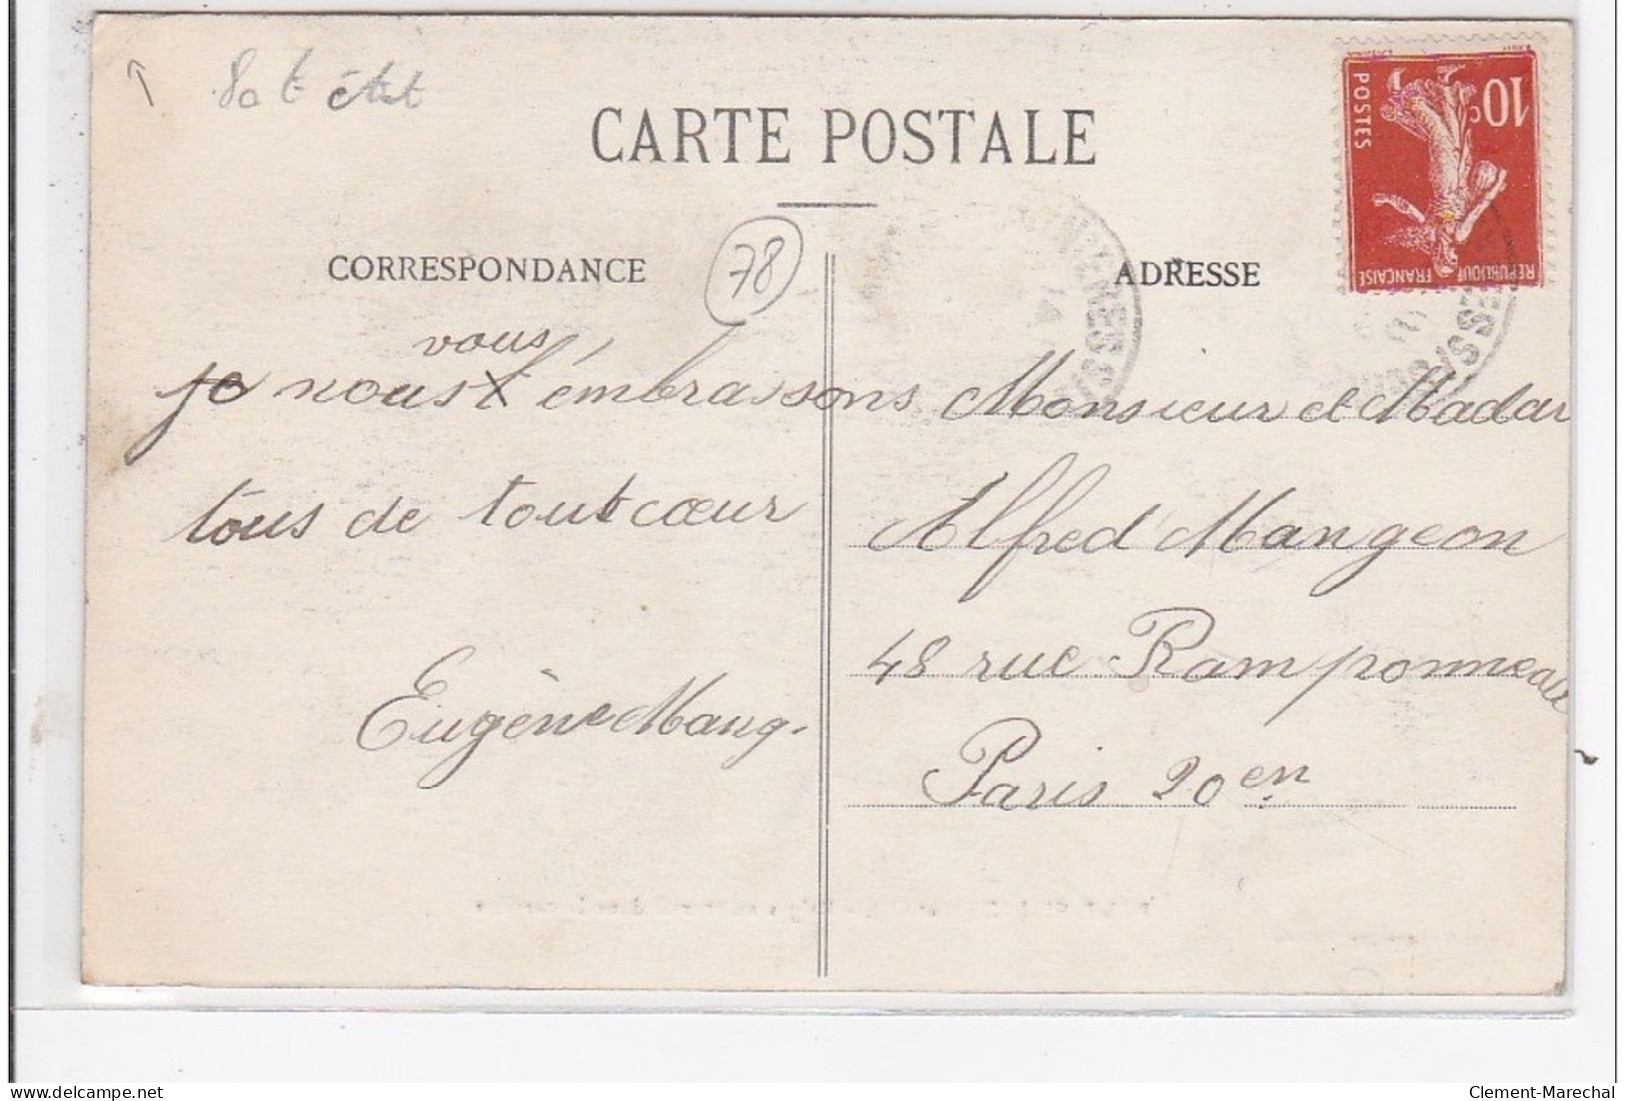 état
CARTE POSTALE
10c
POSTES
REPUBLIQUE FRANÇAISE
78
CORRESPONDANCE
ADRESSE
14
vous
je nous t'embrassons
tous de tout cœur
Eugène Mang.
Monsieur et Madam
Alfred Mangeon
48 rue Ramponneau
Paris 20en
Clement-Marechal